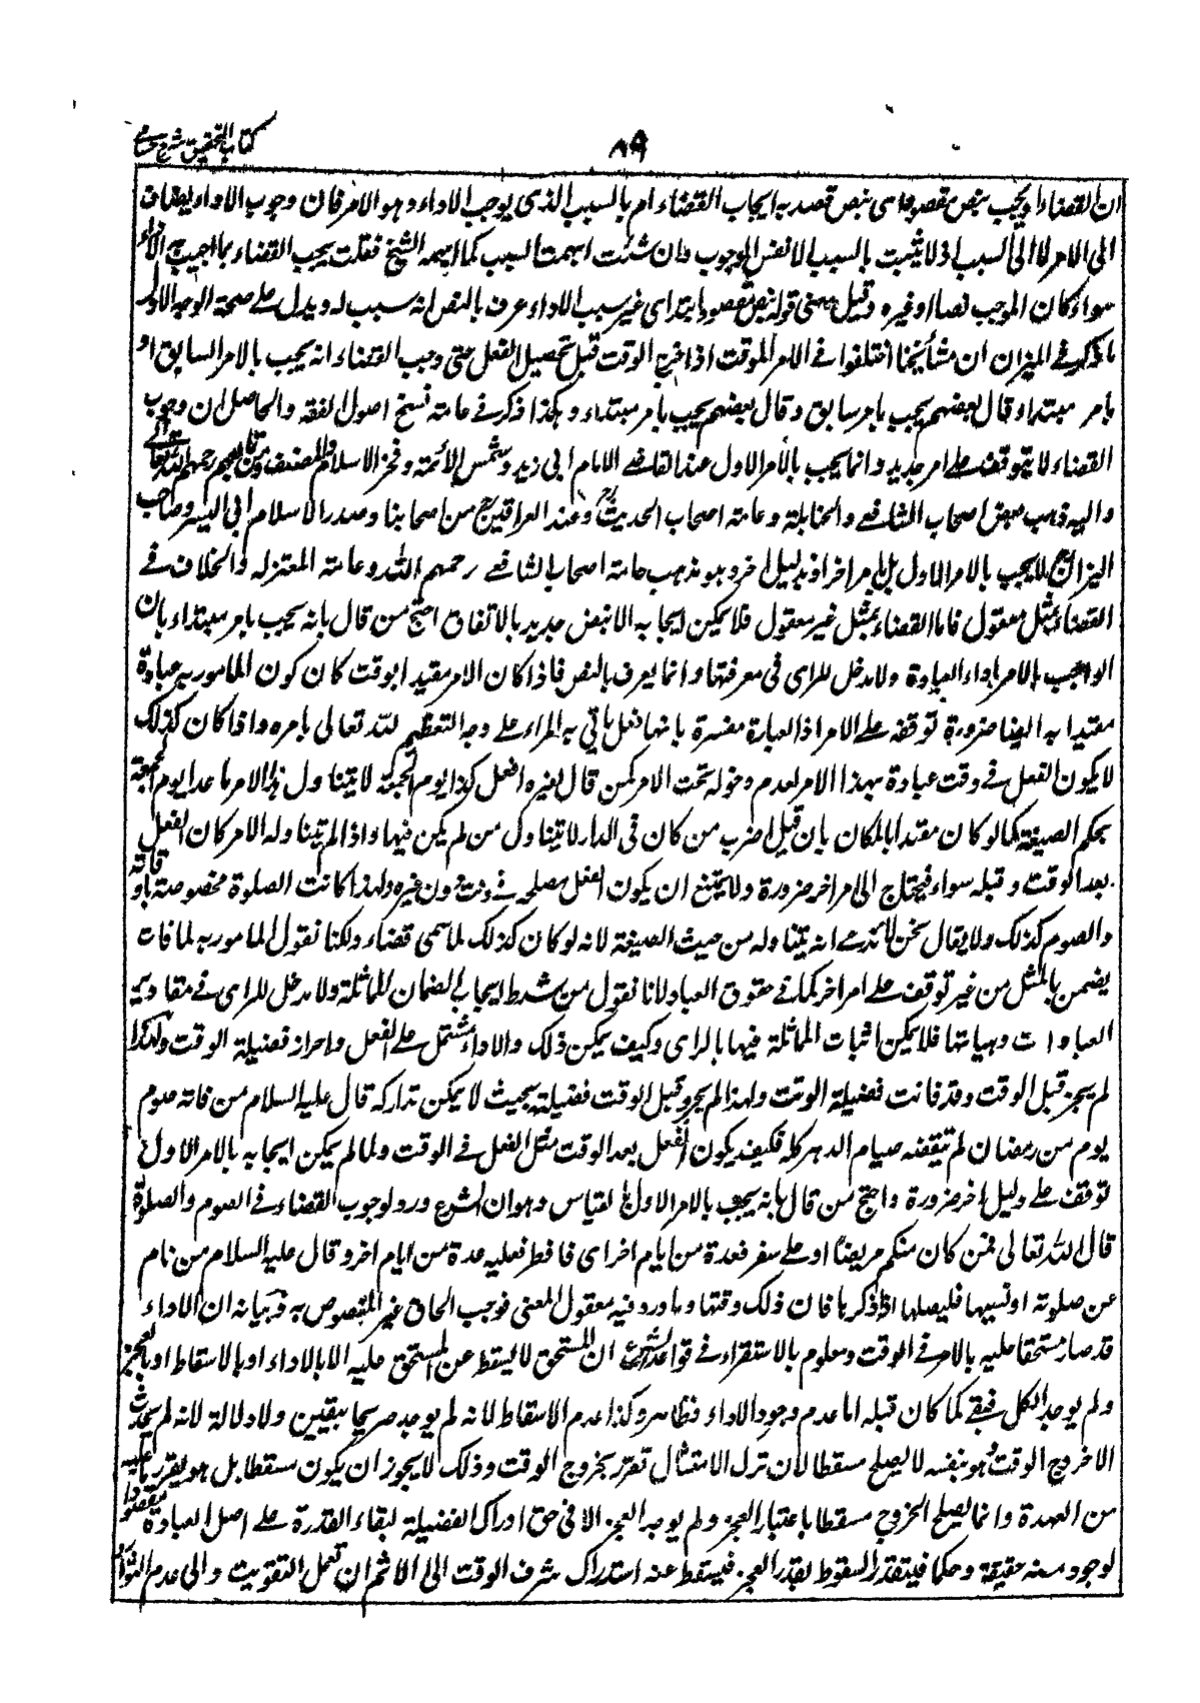 كتاب التحقيق شرح حسامي
٨٩
ان القضاء او يجب بنص مقصود اى بنص قصد به ايجاب القضاء ام بالسبب الذى يوجب الاداء وهو الامر فان وجوب الاداء يضاف
الى الامر لا الى السبب اذ لا يثبت بالسبب الا نفس الوجوب وان شئت ابهمت السبب كما ابهمه الشيخ فقلت يجب القضاء بما اجيب به الاداء
سواء كان الموجب نصا او غيره وقيل معنى قوله بنص مقصود ابتداى غير سبب الاداء عرف بالنص انه سبب له ويدل على صحة الوجه الاول
ما ذكر فى الميزان ان مشائخنا اختلفوا فى الامر الموقت اذا خرج الوقت قبل تحصيل الفعل حتى وجب القضاء انه يجب بالامر السابق او
بامر مبتداء وقال بعضهم يجب بامر سابق وقال بعضهم يجب بامر مبتداء وهكذا ذكر فى عامة نسخ اصول الفقه والحاصل ان وجوب
القضاء لا يتوقف على امر جديد وانما يجب بالامر الاول عند القاضى الامام ابى زيد وشمس الائمة وفخر الاسلام والمصنف ومن تابعهم رحمهم الله تعالى
واليه ذهب بعض اصحاب الشافعى والحنابلة وعامة اصحاب الحديث وعند العراقيين من اصحابنا وصدر الاسلام ابى اليسر وصاحب
الميزان لا يجب بالامر الاول بل بامر اخر او بدليل اخر وهو مذهب عامة اصحاب الشافعى رحمهم الله وعامة المعتزله والخلاف فى
القضاء بمثل معقول فاما القضاء بمثل غير معقول فلا يمكن ايجابه الا بنص جديد بالاتفاق احتج من قال بانه يجب بامر مبتداء بان
الواجب بالامر اداء العبادة ولا مدخل للراى فى معرفتها وانما يعرف بالنص فاذا كان الامر مقيدا بوقت كان كون المامور به عبادة
مقيدا به ايضا ضرورة توقفه على الامر اذ العبارة مفسرة بانها فعل ياتى به المراء على وجه التعظيم لله تعالى بامره واذا كان كذلك
لا يكون الفعل فى وقت عبادة بهذا الامر لعدم دخوله تحت الامر كمن قال لغيره افعل كذا يوم الجمعة لا يتناول هذا الامر ما عدا يوم الجمعة
بحكم الصيغة كما لو كان مقيدا بالمكان بان قيل اضرب من كان فى الدار لا يتناول من لم يكن فيها واذا لم يتناوله الامر كان الفعل
بعد الوقت وقبله سواء فيحتاج الى امر اخر ضرورة ولا يمتنع ان يكون الفعل مصلحة فى وقت دون غيره ولهذا كانت الصلوة مخصوصة باوقاته
والصوم كذلك ولا يقال نحن لا ندعى انه يتناوله من حيث الصيغة لانه لو كان كذلك لما سمى قضاء ولكنا نقول المامور به لما فات
يضمن بالمثل من غير توقف على امر اخر كما فى حقوق العباد لانا نقول من شرط ايجاب الضمان المماثلة ولا مدخل للراى فى مقادير
العبادات وهياتها فلا يمكن اثبات المماثلة فيها بالراى وكيف يمكن ذلك والاداء مشتمل على الفعل واحراز فضيلة الوقت ولهذا
لم يجز قبل الوقت وقد فاتت فضيلة الوقت ولهذا لم يجز وقبل الوقت فضيلة بحيث لا يمكن تداركه قال عليه السلام من فاته صوم
يوم من رمضان لم يقضه صيام الدهر كله فكيف يكون الفعل بعد الوقت مثل الفعل فى الوقت ولما لم يمكن ايجابه بالامر الاول
توقف على دليل اخر ضرورة واحتج من قال بانه يجب بالامر الاول بالقياس وهو ان الشرع ورد لوجوب القضاء فى الصوم والصلوة
قال الله تعالى فمن كان منكم مريضا او على سفر فعدة من ايام اخر اى فافطر فعليه عدة من ايام اخر وقال عليه السلام من نام
عن صلوته او نسيها فليصلها اذا ذكرها فان ذلك وقتها وما ورد فيه معقول المعنى فوجب الحاق غير المنصوص به وبيانه ان الاداء
قد صار مستحقا عليه بالامر فى الوقت ومعلوم بالاستقراء فى قواعد الشرع ان المستحق لا يسقط عن المستحق عليه الا بالاداء او بالاسقاط او بالعجز
ولم يوجد الكل فبقى كما كان قبله اما عدم وجود الاداء فظاهر وكذا عدم الاسقاط لانه لم يوجد صريحا بيقين ولا دلالة لانه لم يحدث
الا خروج الوقت وهو بنفسه لا يصلح مسقطا لان ترك الامتثال تقرر بخروج الوقت وذلك لا يجوز ان يكون مسقطا بل هو يقرر ما عليه
من العهدة وانما يصلح الخروج مسقطا باعتبار العجز ولم يوجد العجز الا فى حق ادراك الفضيلة لبقاء القدرة على اصل العبادة مقصودا
لوجود منه حقيقة وحكما فيتقدر السقوط بقدر العجز فيسقط عنه استدراك شرف الوقت الى الاثم ان تعمد التفويت والى عدم الثواب